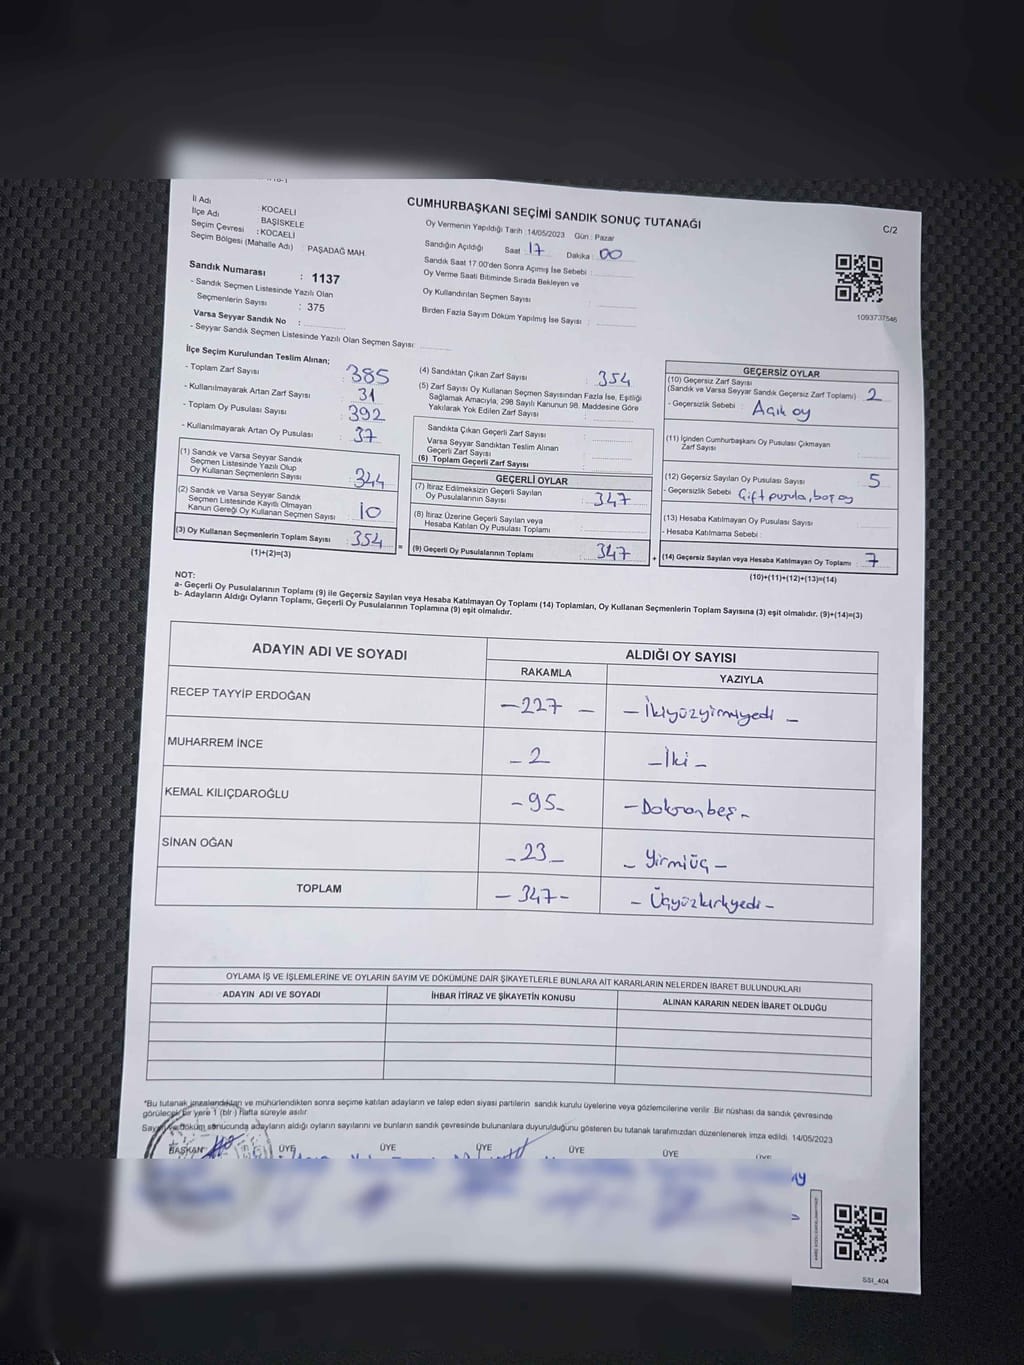 CUMHURBAŞKANI SEÇİMİ SANDIK SONUÇ TUTANAĞI
C/2
İl Adı KOCAELİ
İlçe Adı BAŞİSKELE
Seçim Çevresi : KOCAELİ
Seçim Bölgesi (Mahalle Adı) : PAŞADAĞ MAH.
Oy Vermenin Yapıldığı Tarih : 14/05/2023 Gün : Pazar
Sandığın Açıldığı Saat 17 Dakika : 00
Sandık Saat 17:00'den Sonra Açımış İse Sebebi :
Oy Verme Saati Bitiminde Sırada Bekleyen ve
Oy Kullandırılan Seçmen Sayısı :
Birden Fazla Sayım Döküm Yapılmış İse Sayısı :
1093737546
Sandık Numarası : 1137
- Sandık Seçmen Listesinde Yazılı Olan
Seçmenlerin Sayısı : 375
Varsa Seyyar Sandık No :
- Seyyar Sandık Seçmen Listesinde Yazılı Olan Seçmen Sayısı:
İlçe Seçim Kurulundan Teslim Alınan;
- Toplam Zarf Sayısı : 385
- Kullanılmayarak Artan Zarf Sayısı : 31
- Toplam Oy Pusulası Sayısı : 392
- Kullanılmayarak Artan Oy Pusulası : 37
(1) Sandık ve Varsa Seyyar Sandık
Seçmen Listesinde Yazılı Olup
Oy Kullanan Seçmenlerin Sayısı : 344
(2) Sandık ve Varsa Seyyar Sandık
Seçmen Listesinde Kayıtlı Olmayan
Kanun Gereği Oy Kullanan Seçmen Sayısı : 10
(3) Oy Kullanan Seçmenlerin Toplam Sayısı : 354
(1)+(2)=(3)
(4) Sandıktan Çıkan Zarf Sayısı : 354
(5) Zarf Sayısı Oy Kullanan Seçmen Sayısından Fazla İse, Eşitliği
Sağlamak Amacıyla, 298 Sayılı Kanunun 98. Maddesine Göre
Yakılarak Yok Edilen Zarf Sayısı :
Sandıkta Çıkan Geçerli Zarf Sayısı :
Varsa Seyyar Sandıktan Teslim Alınan
Geçerli Zarf Sayısı :
(6) Toplam Geçerli Zarf Sayısı :
GEÇERLİ OYLAR
(7) İtiraz Edilmeksizin Geçerli Sayılan
Oy Pusulalarının Sayısı : 347
(8) İtiraz Üzerine Geçerli Sayılan veya
Hesaba Katılan Oy Pusulası Toplamı :
= (9) Geçerli Oy Pusulalarının Toplamı : 347
GEÇERSİZ OYLAR
(10) Geçersiz Zarf Sayısı
(Sandık ve Varsa Seyyar Sandık Geçersiz Zarf Toplamı) : 2
- Geçersizlik Sebebi : Açık oy
(11) İçinden Cumhurbaşkanı Oy Pusulası Çıkmayan
Zarf Sayısı :
(12) Geçersiz Sayılan Oy Pusulası Sayısı : 5
- Geçersizlik Sebebi : Çift pusula, boş oy
(13) Hesaba Katılmayan Oy Pusulası Sayısı :
- Hesaba Katılmama Sebebi :
+ (14) Geçersiz Sayılan veya Hesaba Katılmayan Oy Toplamı : 7
(10)+(11)+(12)+(13)=(14)
NOT:
a- Geçerli Oy Pusulalarının Toplamı (9) ile Geçersiz Sayılan veya Hesaba Katılmayan Oy Toplamı (14) Toplamları, Oy Kullanan Seçmenlerin Toplam Sayısına (3) eşit olmalıdır. (9)+(14)=(3)
b- Adayların Aldığı Oyların Toplamı, Geçerli Oy Pusulalarının Toplamına (9) eşit olmalıdır.
ADAYIN ADI VE SOYADI ALDIĞI OY SAYISI
RAKAMLA YAZIYLA
RECEP TAYYİP ERDOĞAN - 227 - - İkiyüzyirmiyedi -
MUHARREM İNCE - 2 - İki -
KEMAL KILIÇDAROĞLU - 95 - - Doksanbeş -
SİNAN OĞAN - 23 - - Yirmiüç -
TOPLAM - 347 - - Üçyüzkırkyedi -
OYLAMA İŞ VE İŞLEMLERİNE VE OYLARIN SAYIM VE DÖKÜMÜNE DAİR ŞİKAYETLERLE BUNLARA AİT KARARLARIN NELERDEN İBARET BULUNDUKLARI
ADAYIN ADI VE SOYADI İHBAR İTİRAZ VE ŞİKAYETİN KONUSU ALINAN KARARIN NEDEN İBARET OLDUĞU
*Bu tutanak imzalandıktan ve mühürlendikten sonra seçime katılan adayların ve talep eden siyasi partilerin sandık kurulu üyelerine veya gözlemcilerine verilir. Bir nüshası da sandık çevresinde
görülecek bir yere 1 (bir) hafta süreyle asılır.
Sayım ve döküm sonucunda adayların aldığı oyların sayılarını ve bunların sandık çevresinde bulunanlara duyurulduğunu gösteren bu tutanak tarafımızdan düzenlenerek imza edildi. 14/05/2023
BAŞKAN ÜYE ÜYE ÜYE ÜYE ÜYE ÜYE
SSI_404